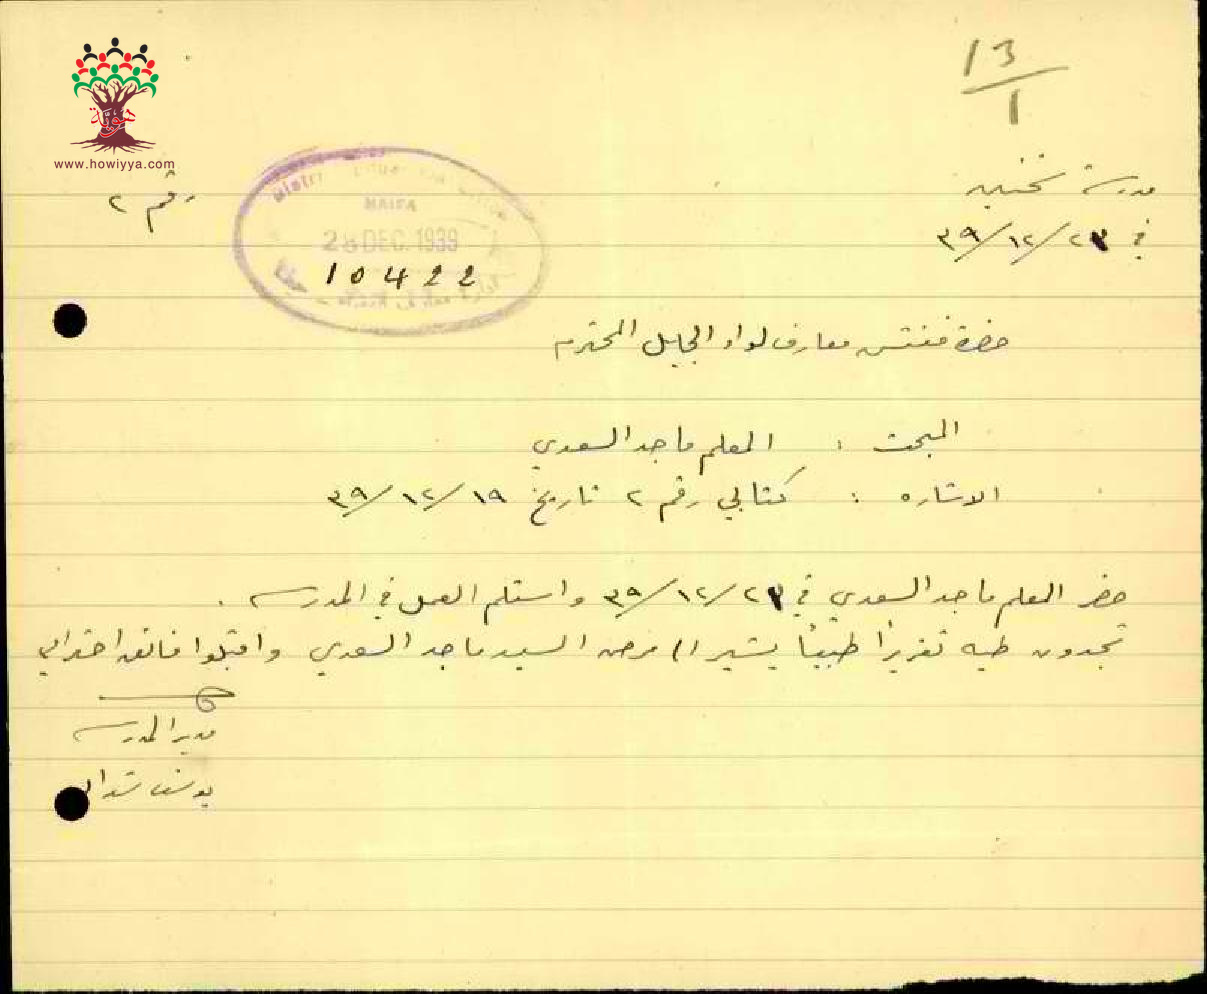 13
1
هوية
www.howiyya.com
رقم ٢
HAIFA
28 DEC. 1939
10422
مدرسة
في ٢٣/١٢/٣٩
حضرة مفتش معارف لواء الجليل المحترم
المبحث : المعلم ماجد السعدي
الاشاره : كتابي رقم ٢ تاريخ ١٩/١٢/٣٩
حضر المعلم ماجد السعدي في /١٢/٣٩ واستلم العمل في المدرسه .
تجدون طيه تقريرًا طبيًا يشير الى مرض السيد ماجد السعدي واقبلوا فائق احترامي
مدير المدرسه
يوسف